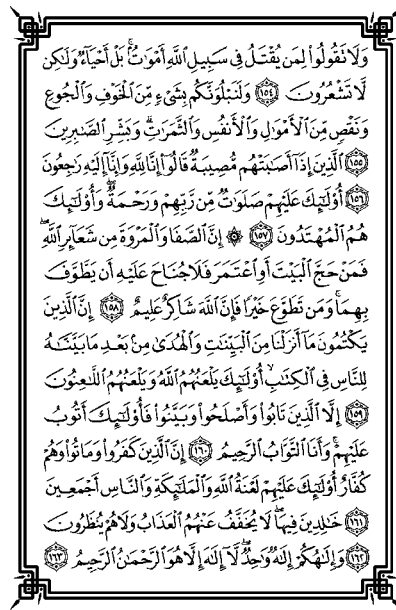 وَلَا تَقُولُوا۟ لِمَن يُقْتَلُ فِى سَبِيلِ ٱللَّهِ أَمْوَٰتٌۢ ۚ بَلْ أَحْيَآءٌ وَلَـٰكِن
لَّا تَشْعُرُونَ ﴿١٥٤﴾ وَلَنَبْلُوَنَّكُم بِشَىْءٍ مِّنَ ٱلْخَوْفِ وَٱلْجُوعِ
وَنَقْصٍ مِّنَ ٱلْأَمْوَٰلِ وَٱلْأَنفُسِ وَٱلثَّمَرَٰتِ ۗ وَبَشِّرِ ٱلصَّـٰبِرِينَ
﴿١٥٥﴾ ٱلَّذِينَ إِذَآ أَصَـٰبَتْهُم مُّصِيبَةٌ قَالُوٓا۟ إِنَّا لِلَّهِ وَإِنَّآ إِلَيْهِ رَٰجِعُونَ
﴿١٥٦﴾ أُو۟لَـٰٓئِكَ عَلَيْهِمْ صَلَوَٰتٌ مِّن رَّبِّهِمْ وَرَحْمَةٌ ۖ وَأُو۟لَـٰٓئِكَ
هُمُ ٱلْمُهْتَدُونَ ﴿١٥٧﴾ ۞ إِنَّ ٱلصَّفَا وَٱلْمَرْوَةَ مِن شَعَآئِرِ ٱللَّهِ ۖ
فَمَنْ حَجَّ ٱلْبَيْتَ أَوِ ٱعْتَمَرَ فَلَا جُنَاحَ عَلَيْهِ أَن يَطَّوَّفَ
بِهِمَا ۚ وَمَن تَطَوَّعَ خَيْرًا فَإِنَّ ٱللَّهَ شَاكِرٌ عَلِيمٌ ﴿١٥٨﴾ إِنَّ ٱلَّذِينَ
يَكْتُمُونَ مَآ أَنزَلْنَا مِنَ ٱلْبَيِّنَـٰتِ وَٱلْهُدَىٰ مِنۢ بَعْدِ مَا بَيَّنَّـٰهُ
لِلنَّاسِ فِى ٱلْكِتَـٰبِ ۙ أُو۟لَـٰٓئِكَ يَلْعَنُهُمُ ٱللَّهُ وَيَلْعَنُهُمُ ٱللَّـٰعِنُونَ
﴿١٥٩﴾ إِلَّا ٱلَّذِينَ تَابُوا۟ وَأَصْلَحُوا۟ وَبَيَّنُوا۟ فَأُو۟لَـٰٓئِكَ أَتُوبُ
عَلَيْهِمْ ۚ وَأَنَا ٱلتَّوَّابُ ٱلرَّحِيمُ ﴿١٦٠﴾ إِنَّ ٱلَّذِينَ كَفَرُوا۟ وَمَاتُوا۟ وَهُمْ
كُفَّارٌ أُو۟لَـٰٓئِكَ عَلَيْهِمْ لَعْنَةُ ٱللَّهِ وَٱلْمَلَـٰٓئِكَةِ وَٱلنَّاسِ أَجْمَعِينَ
﴿١٦١﴾ خَـٰلِدِينَ فِيهَا ۖ لَا يُخَفَّفُ عَنْهُمُ ٱلْعَذَابُ وَلَا هُمْ يُنظَرُونَ
﴿١٦٢﴾ وَإِلَـٰهُكُمْ إِلَـٰهٌ وَٰحِدٌ ۖ لَّآ إِلَـٰهَ إِلَّا هُوَ ٱلرَّحْمَـٰنُ ٱلرَّحِيمُ ﴿١٦٣﴾